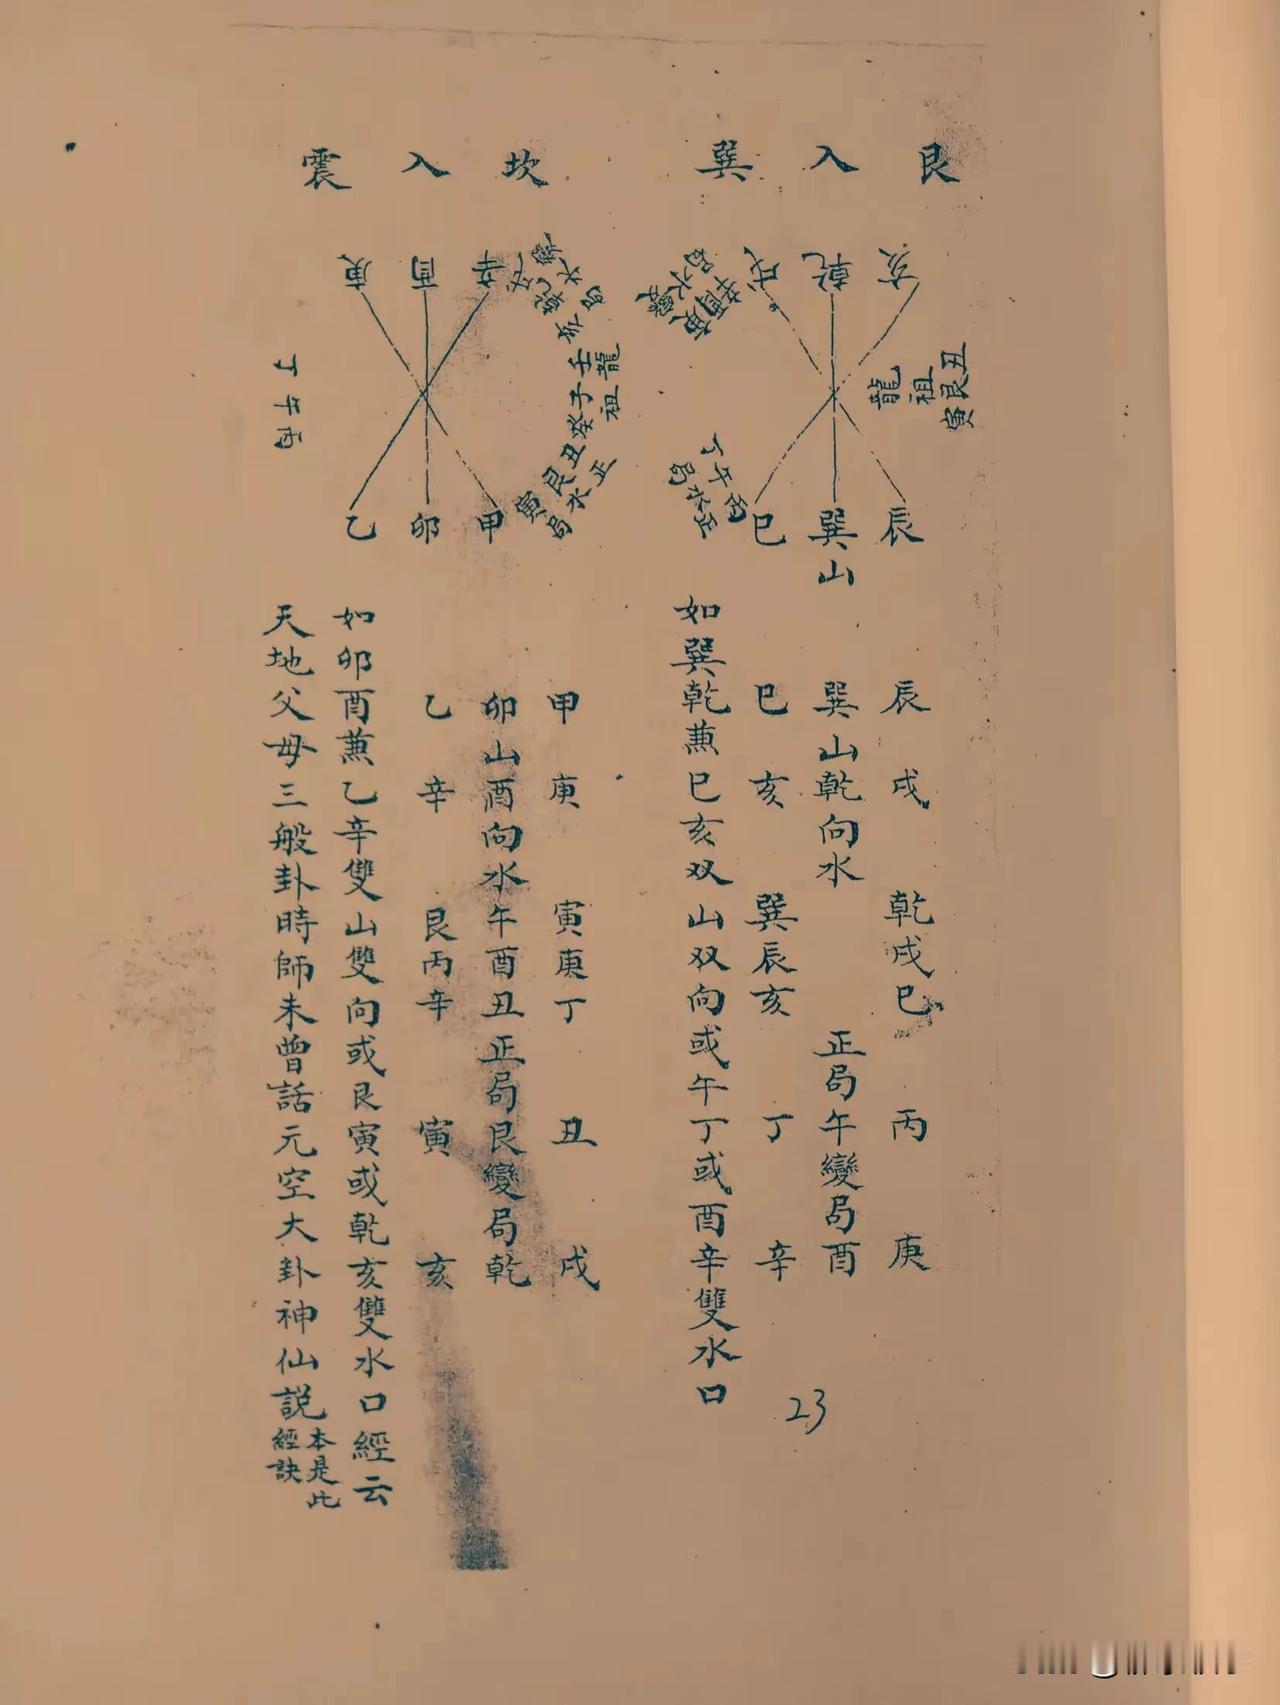 艮入巽
亥
乾
戌
丑艮寅
祖
龍
庚酉辛
丙午丁
正水局
辰
巽山
巳
辰戌 乾戌巳 丙 庚
巽山乾向水 正局午變局酉
巳亥 巽辰亥 丁 辛
如巽乾蒹巳亥双山双向或午丁或酉辛雙水口
坎入震
辛
酉
庚
戌乾亥
壬子癸
龍
祖
丑艮寅
正水局
丙午丁
甲
卯
乙
甲庚 寅庚丁 丑 戌
卯山酉向水午酉丑正局艮變局乾
乙辛 艮丙辛 寅 亥
如卯酉蒹乙辛雙山雙向或艮寅或乾亥雙水口經云
天地父母三般卦時師未曾話元空大卦神仙説
本是此
經訣
23